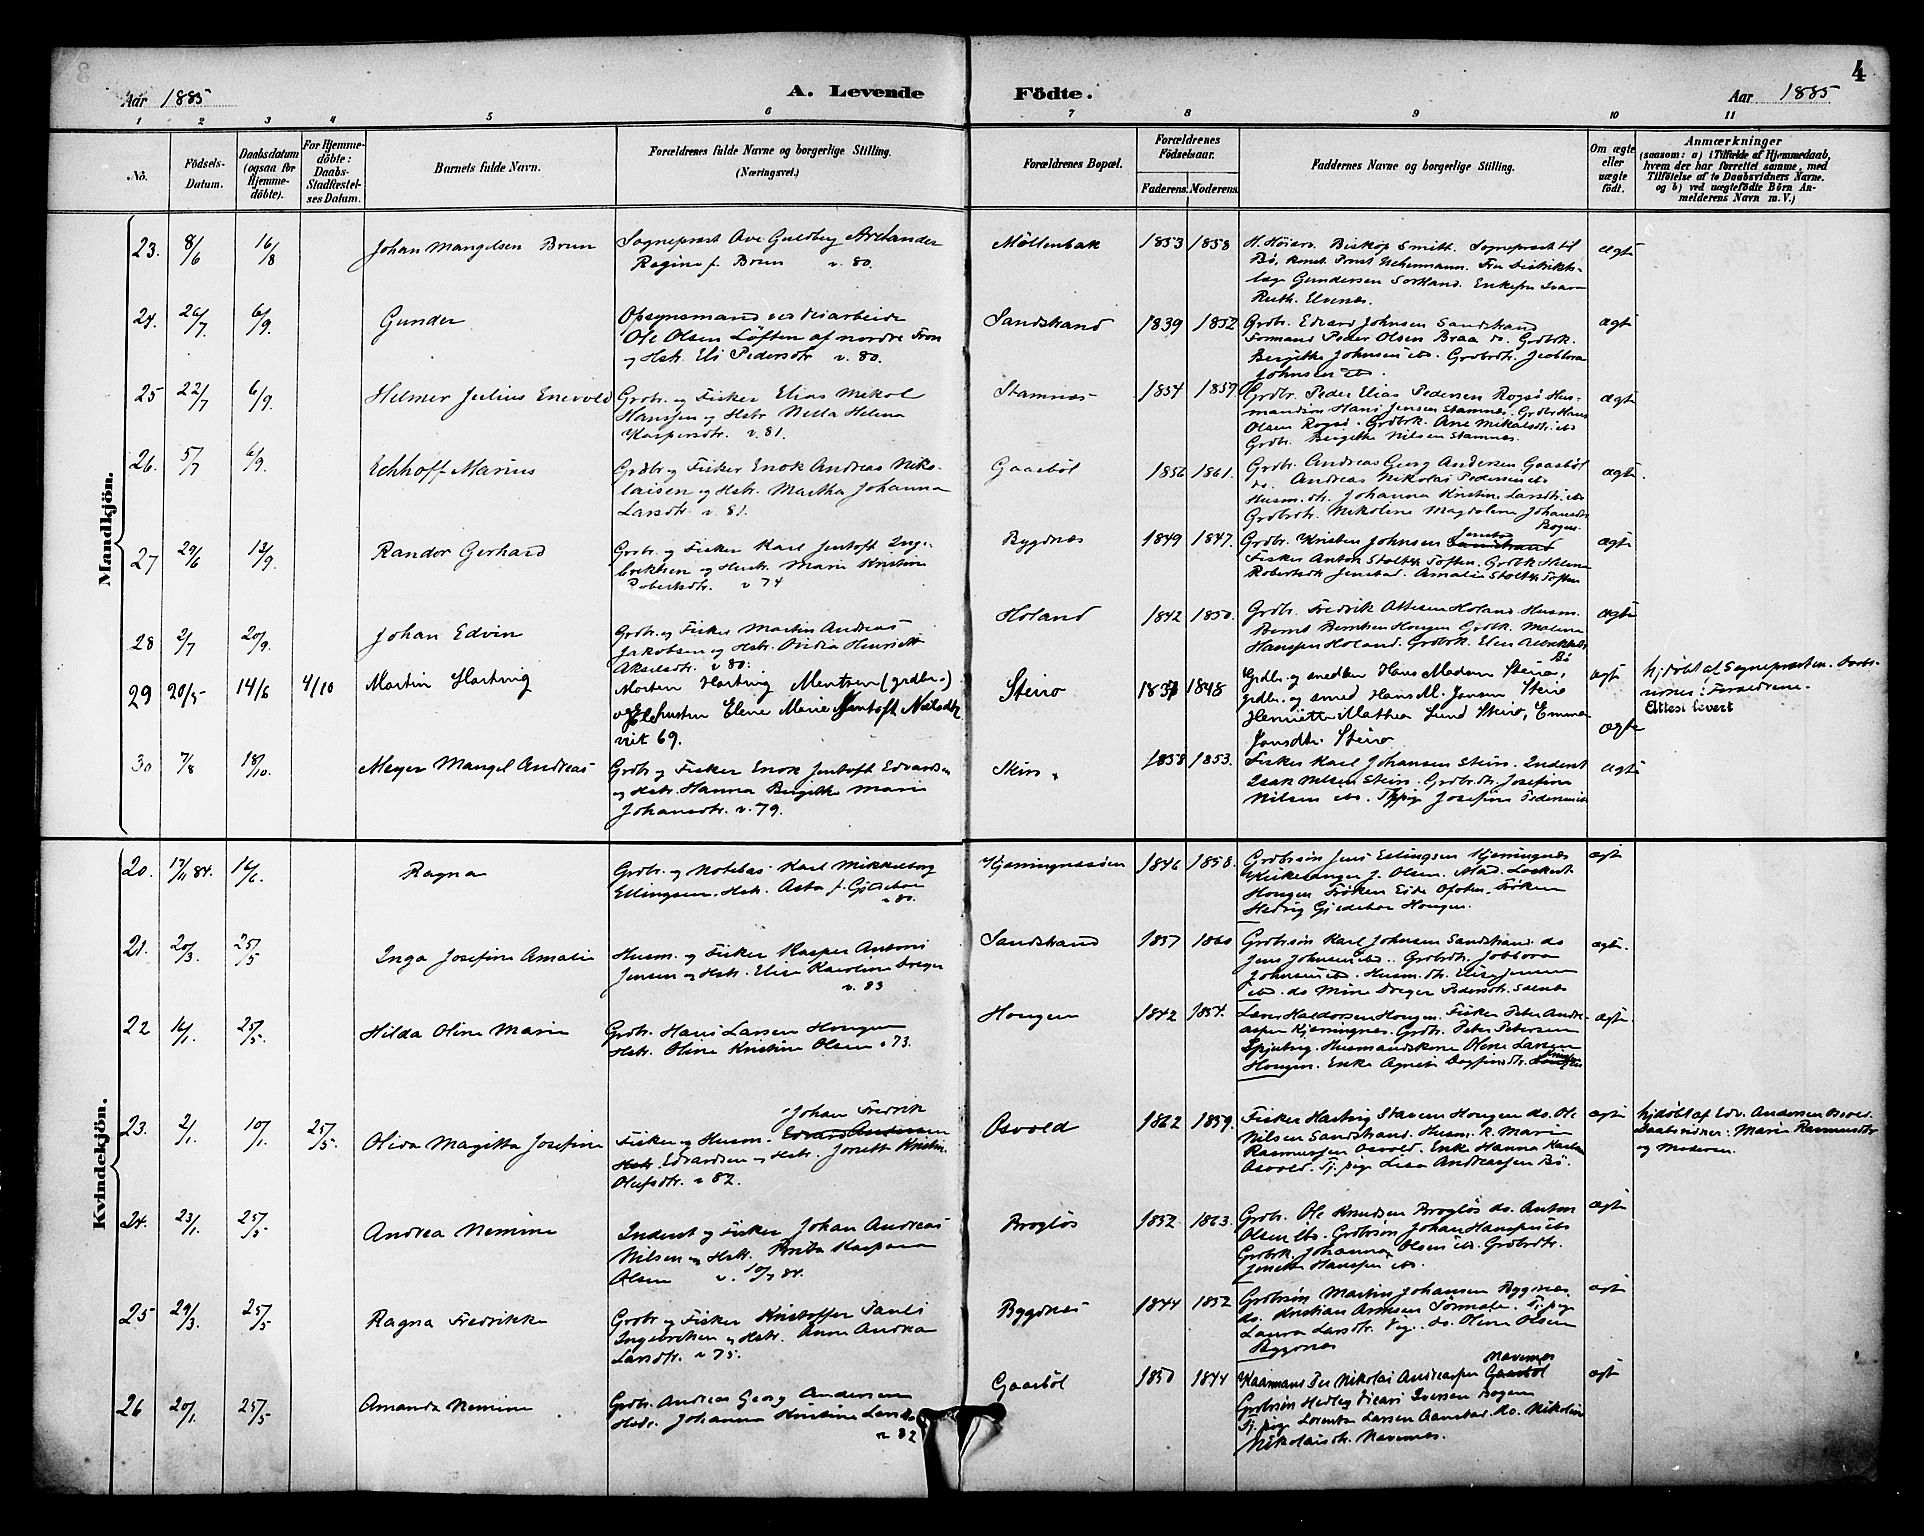 4
Aar 1885
A. Levende Födte.
Aar 1885
1 2 3 4 5 6 7 8 9 10 11
No.
Födsels-Datum.
Daabsdatum (ogsaa for Hjemmedöbte).
For Hjemmedöbte: Daabs-Stadfæstelses Datum.
Barnets fulde Navn.
Forældrenes fulde Navne og borgerlige Stilling.
(Næringsvei.)
Forældrenes Bopæl.
Forældrenes Födselsaar.
Faderens. Moderens.
Faddernes Navne og borgerlige Stilling.
Om ægte eller uægte födt.
Anmærkninger
(saasom: a) i Tilfælde af Hjemmedaab, hvem der har forrettet samme, med Tilföielse af to Daabsvidners Navne, og b) ved uægtefödte Börn Anmelderens Navn m. V.)
Mandkjön.
23. 8/6 16/8 Johan Mangelsen Brun
Sogneprest Ove Guldberg Archander
Regine f. Brun v. 80.
Møllenbak 1853 1858
H. Höiærv. Biskop Smitt. Sogneprest til
ægte
24. 26/7 6/9 Gunder
Opsynsmand ved Veiarbeide
Ole Olsen Løften af nordre Fron
og Hstr. Eli Pedersdtr. v. 80.
Sandstrand 1839 1852
Grdbr. Edvard Johnsen Sandstrand
Formand Peder Olsen Braa do. Grdbrk.
Bergitte Johnsen ibd. Grdbrdtr. Jeobbora
Johnsen ibd.
ægte
25 22/7 6/9 Helmer Julius Enevold
Grdbr. og Fisker Elias Mikal
Hanssen og Hstr. Nella Helena
Kaspersdtr. v. 81.
Stamnes 1854 1859
Grdbr. Peder Elias Pedersen Rogsø Hus-
mandsøn Hans Jensen Stamnes. Grdbr. Hans
Olsen Rogsø. Grdbrk. Ane Mikalsdtr. ibd
Grdbr. Bergitte Nilsen Stamnes.
ægte
26. 5/7 6/9 Echhoff Marius
Grdbr. og Fisker Enok Andreas Niko-
laisen og Hstr. Martha Johanna
Larsdtr. v. 81.
Gaasbøl 1856 1861.
Grdbr. Andreas Georg Andersen Gaasbøl
do. Andreas Nikolai Pedersen ibd
Husm. dtr. Johanna Kristine Larsdtr. ibd
Grdbrdtr. Nikoline Magdalene Johansdtr
Bogen.
ægte
27 29/6 13/9 Randor Gerhard
Grdbr. og Fisker Karl Jentoft Inge-
brektsen og Hustr. Marie Kristine
Robertsdtr. v 74
Bygdnes 1849 1847.
Grdbr. Kristen Johnsen Sandstrand
Fisker Anton Stoltz Toften. Grdbrk Helene
Robertsdtr Jenstad. Amalie Stoltz Toften
ægte
28 2/7 20/9 Johan Edvin
Grdbr. og Fisker Martin Andreas
Jakobsen og Hstr. Ovidia Henriette
Akselsdtr. v 80.
Holand 1842 1850.
Grdbr. Fredrik Ottesen Holand Husm.
Bernt Berntsen Hongen Grdbrk. Malene
Hanssen Holand. Grdbrk. Elen Albrektsdtr
Bø
ægte
29 20/5 14/6 4/10 Martin Hartvig
Morten Hartvig Mentzen (grdbr.)
og Hustru Elene Marie Jentoft Nilsdtr
viet 69.
Steiro 1837 1848
Grdbr. og smeden Hans Madsen Steiro,
grdbr. og smed Hans M. Jensen Steiro
Henriette Mathea Lund Steiro, Emma
Jonsdtr. Steiro
ægte
hj.døbt af Sognepræsten. Daabs-
vidner: Forældrene.
Attest levert
ægte
30 7/8 18/10 Meyer Mangel Andreas
Grdbr. og Fisker Enok Jentoft Edvardsen
og Hstr. Hanna Bergitte Marie
Johansdtr. v. 79.
Skiro 1858 1853.
Fisker Karl Johansen Steiro. Inderst
Isak Nilsen Steiro. Grdbrdtr. Josefine
Nilsen ibd. Tj.pige Josefine Pedersen ibd
ægte
Kvindekjön.
20. 17/11 84. 16/6. Ragna
Grdbr. og Notebas Karl Mikkelborg
Ellingsen. Hstr. Asta f. Gjedebo
v 80.
Kjerringnesøen 1846 1858.
Grdbrsøn Jens Ellingsen Kjerringnes
Kirkesanger J. Olsen. Mad. Lockert
Hongen Frøken Eide Ofoten. Frøken
Hedvig Gjedebo Hongen.
ægte
21. 20/3. 25/5 Inga Josefine Amalie
Husm. og Fisker Kasper Antoni
Jensen og Hstr. Elise Karoline Dreyer
v. 83
Sandstrand 1857 1860
Grdbrsøn Karl Johnsen Sandstrand. do
Jens Johnsen ibd. Grdbrdtr. Jobbora
Johnsen ibd. Husm. dtr. Elise Jensen
ibd. do Mine Dreyer Pedersdtr.
ægte.
22 16/1. 25/5. Hilda Oline Marie
Grdbr. Hans Larsen Hongen
Hstr. Oline Kristine Olsen v 73.
Hongen 1842 1854.
Lars Haldorsen Hongen. Fisker Peter Andre-
assen Kjerringnes. Grdbr. Peter Petersen
Spjutvig. Husmandskone Olene Larsen
Hongen. Enke Agnete Dagfinsdtr.
ægte.
23. 2/1. 10/1. 25/5. Olida Margitta Josefine
Johan Fredrik
Fisker og Husm. Edvard Andersen
Hstr. Edvardsen og Hstr. Jonette Kristine
Olufsdtr. v 82.
Osvold 1862 1859.
Fisker Hartvig Stavem Hongen do. Ole
Nilsen Sandstrand. Husm. k. Marie
Rasmussen Osvold. Enke Hanna
Osvold. Tj. pige Lisa Andreassen Bø.
ægte
hjdøbt af Edv. Andersen Osvol.
Daabsvidner: Marie Rasmusdtr
og Moderen.
24. 23/1. 25/5. Andrea Nemine
Inderst og Fisker Johan Andreas
Nilsen og Hstr. Brita Kaspara
Olsen v. 10/7 84.
Brogløs 1852 1863.
Grdbr. Ole Knudsen Brogløs do. Anton
Olsen ibd. Grdbrsøn Johan Hanssen ibd
Grdbrk. Johanna Olsen ibd. Grdbrdtr.
Jonetta Hanssen ibd.
ægte
25 29/3. 25/5 Ragna Fredrikke
Grdbr og Fisker Kristoffer Pauli
Ingebrektsen og Hstr. Anne Andrea
Larsdtr. v 75.
Bygdnes 1844 1852
Grdbrsøn Martin Johansen Bygdnes.
do. Kristian Arntsen Sørmela. Tj. pige
Laura Larsdtr. Vig. do. Oline Olsen
Bygdnes
ægte
26 20/1. 25/5. Amanda Nemine
Grdbr. Andreas Georg Andersen
Hstr. Johanna Kristine Larsdtr
v 82
Gaasbøl 1850 1844
Navernes
Kaarmand Per Nikolai Andreassen Gaasbøl
Grdbrsøn Hedley Vicari Iversen Bogen
Tj. pige Lorentse Larsen Aanstad. do. Nikoline
Nikolaisdtr. Navernes.
ægte